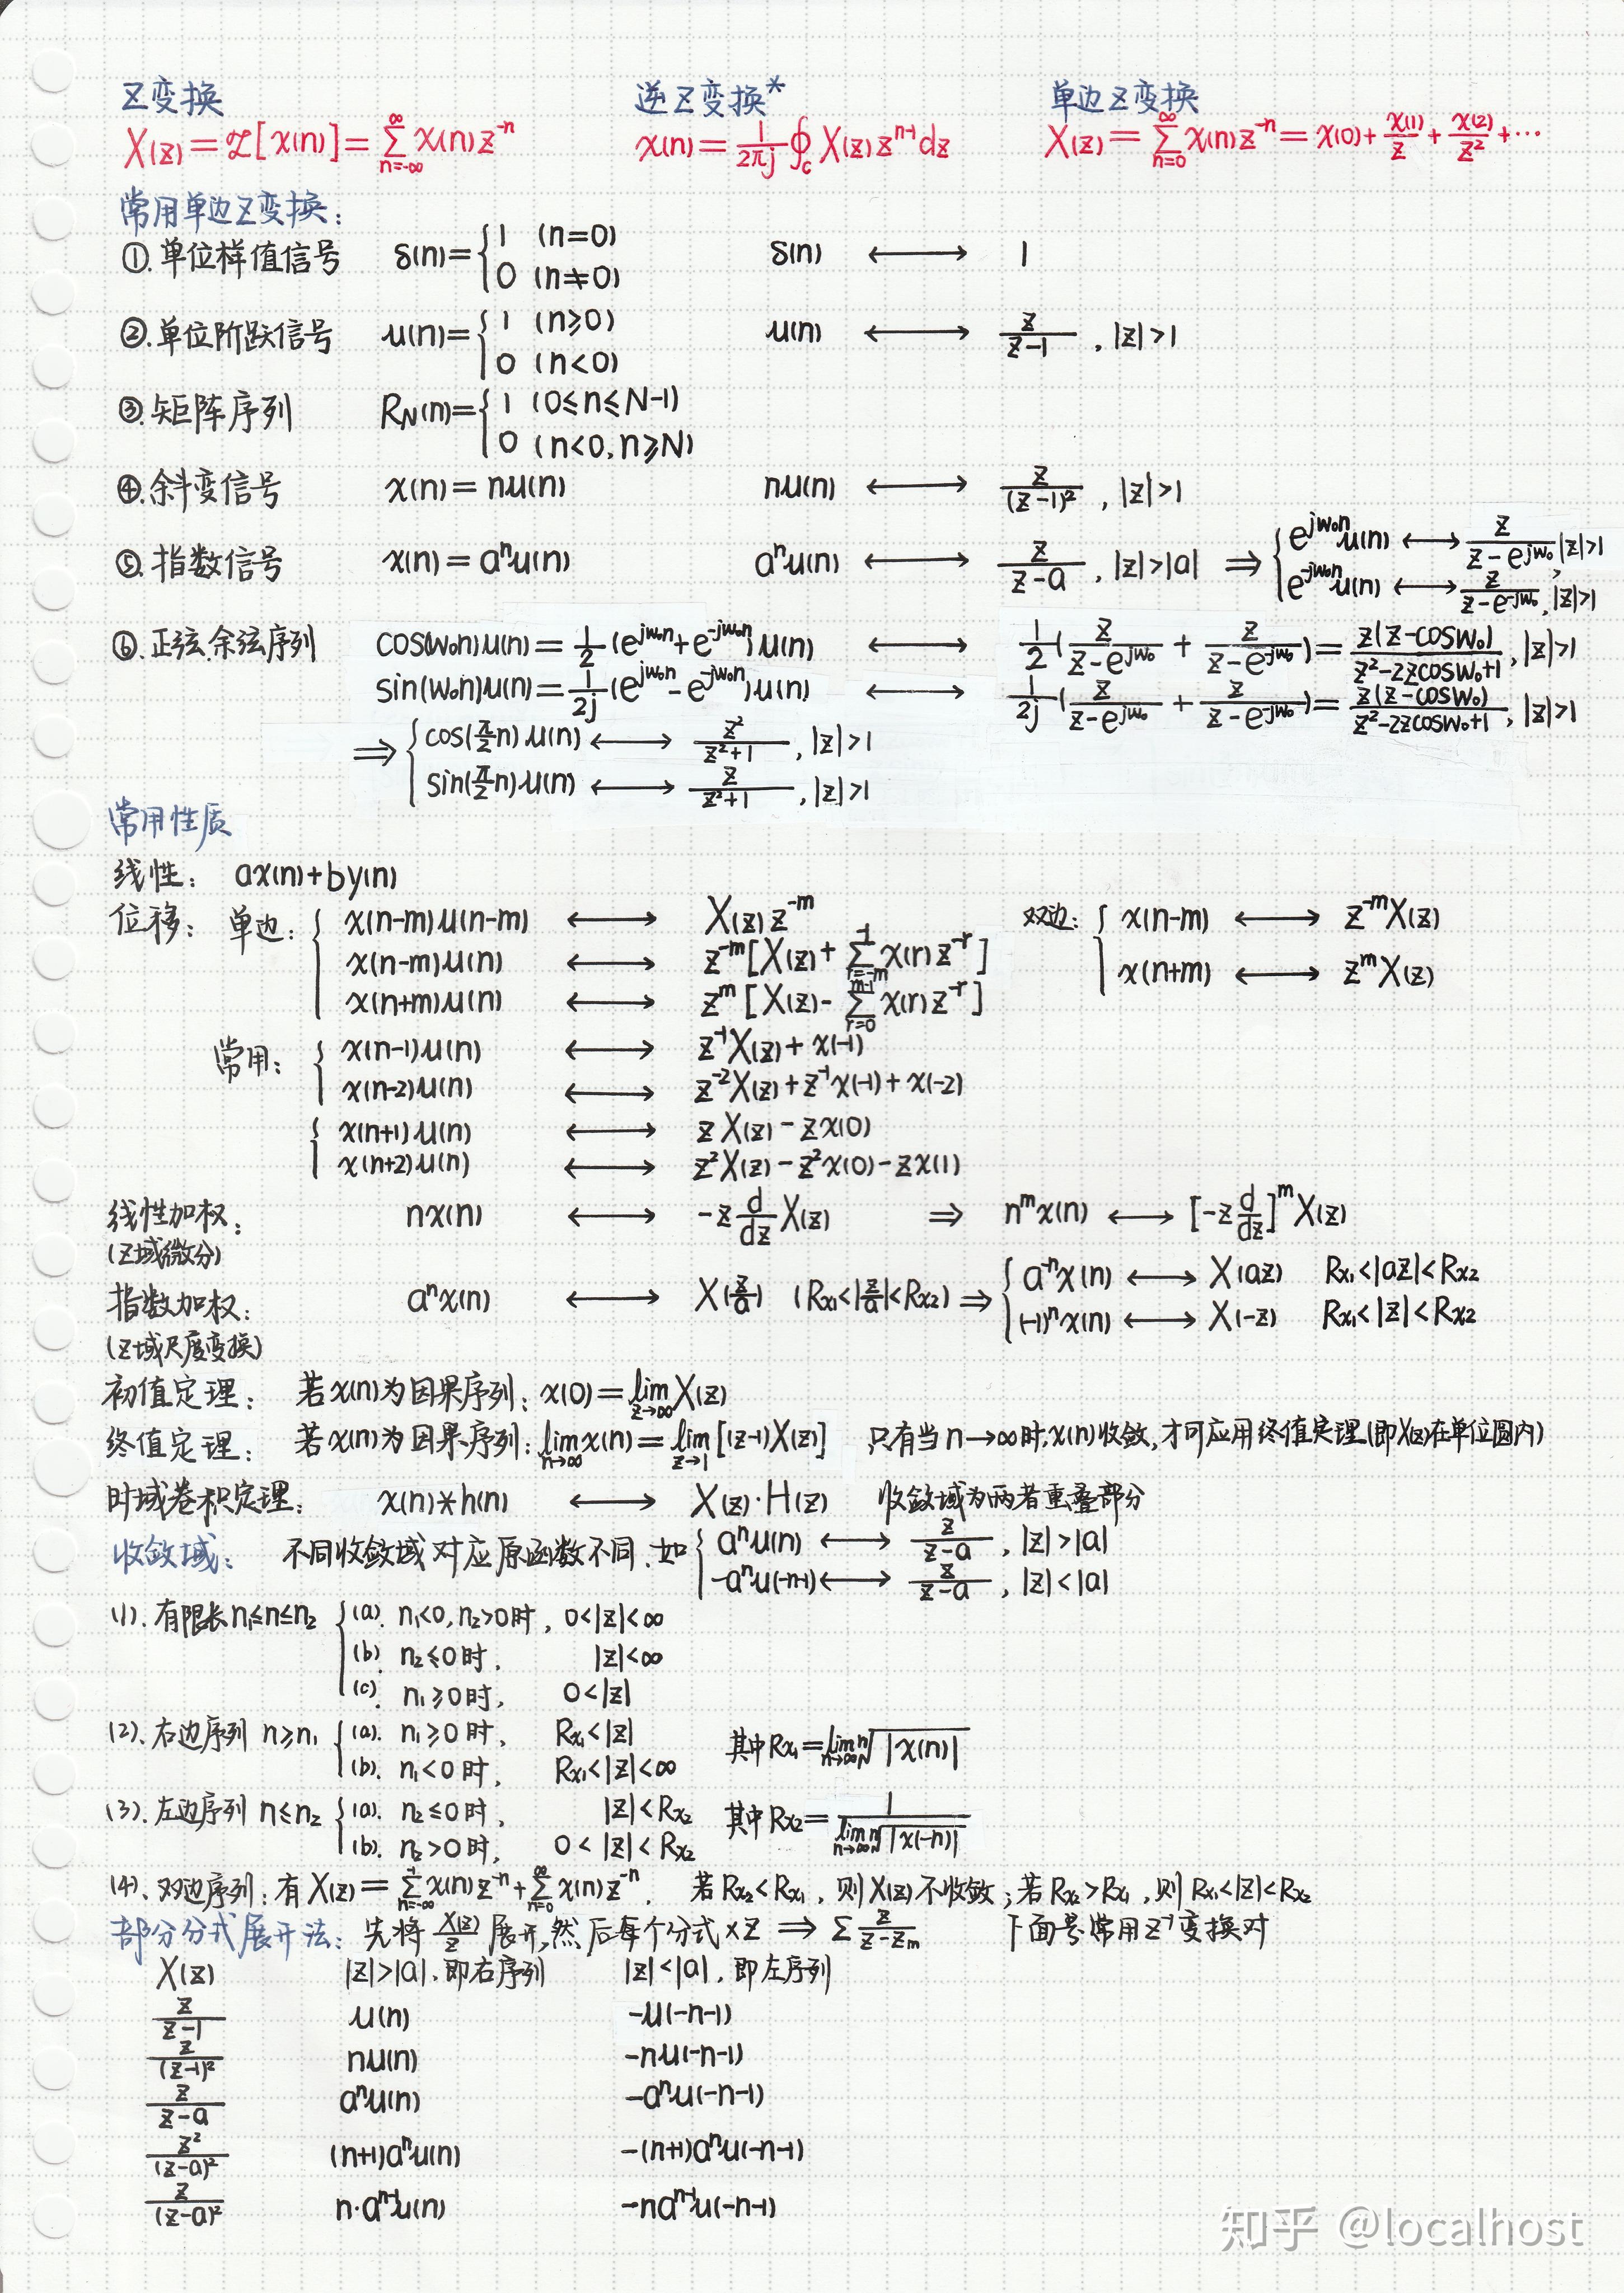 Z变换 逆Z变换* 单边Z变换
X(z)=𝒵[x(n)]=∑_{n=-∞}^{∞} x(n)z^{-n} x(n)=\frac{1}{2πj}∮_c X(z)z^{n-1}dz X(z)=∑_{n=0}^{∞} x(n)z^{-n}=x(0)+\frac{x(1)}{z}+\frac{x(2)}{z^2}+…
常用单边Z变换:
①.单位样值信号 δ(n)={1 (n=0) δ(n) ⟷ 1
0 (n≠0)
②.单位阶跃信号 u(n)={1 (n≥0) u(n) ⟷ \frac{z}{z-1}, |z|>1
0 (n<0)
③.矩阵序列 R_N(n)={1 (0≤n≤N-1)
0 (n<0,n≥N)
④.斜变信号 x(n)=nu(n) nu(n) ⟷ \frac{z}{(z-1)^2}, |z|>1
⑤.指数信号 x(n)=a^n u(n) a^n u(n) ⟷ \frac{z}{z-a}, |z|>|a| ⇒ {e^{jw_0n}u(n) ⟷ \frac{z}{z-e^{jw_0}}, |z|>1
e^{-jw_0n}u(n) ⟷ \frac{z}{z-e^{-jw_0}}, |z|>1
⑥.正弦.余弦序列 cos(w_0n)u(n)=\frac{1}{2}(e^{jw_0n}+e^{-jw_0n})u(n) ⟷ \frac{1}{2}(\frac{z}{z-e^{jw_0}}+\frac{z}{z-e^{-jw_0}})=\frac{z(z-cosw_0)}{z^2-2zcosw_0+1}, |z|>1
sin(w_0n)u(n)=\frac{1}{2j}(e^{jw_0n}-e^{-jw_0n})u(n) ⟷ \frac{1}{2j}(\frac{z}{z-e^{jw_0}}+\frac{z}{z-e^{-jw_0}})=\frac{z(z-cosw_0)}{z^2-2zcosw_0+1}, |z|>1
⇒ {cos(\frac{π}{2}n)u(n) ⟷ \frac{z^2}{z^2+1}, |z|>1
sin(\frac{π}{2}n)u(n) ⟷ \frac{z}{z^2+1}, |z|>1
常用性质
线性: ax(n)+by(n)
位移: 单边: {x(n-m)u(n-m) ⟷ X(z)z^{-m} 双边: {x(n-m) ⟷ z^{-m}X(z)
x(n-m)u(n) ⟷ z^{-m}[X(z)+∑_{r=-m}^{-1} x(r)z^{-r}] x(n+m) ⟷ z^m X(z)
x(n+m)u(n) ⟷ z^m[X(z)-∑_{r=0}^{m-1} x(r)z^{-r}]
常用: {x(n-1)u(n) ⟷ z^{-1}X(z)+x(-1)
x(n-2)u(n) ⟷ z^{-2}X(z)+z^{-1}x(-1)+x(-2)
{x(n+1)u(n) ⟷ zX(z)-zx(0)
x(n+2)u(n) ⟷ z^2X(z)-z^2x(0)-zx(1)
线性加权: nx(n) ⟷ -z\frac{d}{dz}X(z) ⇒ n^m x(n) ⟷ [-z\frac{d}{dz}]^m X(z)
(Z域微分)
指数加权: a^n x(n) ⟷ X(\frac{z}{a}) (R_{x1}<|\frac{z}{a}|<R_{x2}) ⇒ {a^{-n}x(n) ⟷ X(az) R_{x1}<|az|<R_{x2}
(-1)^n x(n) ⟷ X(-z) R_{x1}<|z|<R_{x2}
(Z域尺度变换)
初值定理: 若x(n)为因果序列: x(0)=lim_{z→∞}X(z)
终值定理: 若x(n)为因果序列: lim_{n→∞}x(n)=lim_{z→1}[(z-1)X(z)] 只有当n→∞时,x(n)收敛,才可应用终值定理(即X(z)在单位圆内)
时域卷积定理: x(n)*h(n) ⟷ X(z)·H(z) 收敛域为两者重叠部分
收敛域: 不同收敛域对应原函数不同.如 {a^n u(n) ⟷ \frac{z}{z-a}, |z|>|a|
-a^n u(-n-1) ⟷ \frac{z}{z-a}, |z|<|a|
(1).有限长n_1≤n≤n_2 {(a). n_1<0,n_2>0时, 0<|z|<∞
(b). n_2≤0时, |z|<∞
(c). n_1≥0时, 0<|z|
(2).右边序列 n≥n_1 {(a). n_1≥0时, R_{x1}<|z| 其中R_{x1}=lim_{n→∞}\sqrt[n]{|x(n)|}
(b). n_1<0时, R_{x1}<|z|<∞
(3).左边序列 n≤n_2 {(a). n_2≤0时, |z|<R_{x2} 其中R_{x2}=\frac{1}{lim_{n→∞}\sqrt[n]{|x(-n)|}}
(b). n_2>0时, 0<|z|<R_{x2}
(4).双边序列:有X(z)=∑_{n=-∞}^{-1} x(n)z^{-n}+∑_{n=0}^{∞} x(n)z^{-n}. 若R_{x2}<R_{x1}, 则X(z)不收敛;若R_{x2}>R_{x1}, 则R_{x1}<|z|<R_{x2}
部分分式展开法: 先将\frac{X(z)}{z}展开,然后每个分式×Z ⇒ ∑\frac{z}{z-z_m} 下面是常用Z^{-1}变换对
X(z) |z|>|a|,即右序列 |z|<|a|,即左序列
\frac{z}{z-1} u(n) -u(-n-1)
\frac{z}{(z-1)^2} nu(n) -nu(-n-1)
\frac{z}{z-a} a^n u(n) -a^n u(-n-1)
\frac{z^2}{(z-a)^2} (n+1)a^n u(n) -(n+1)a^n u(-n-1)
\frac{z}{(z-a)^2} n·a^{n-1}u(n) -na^{n-1}u(-n-1)
知乎 @localhost